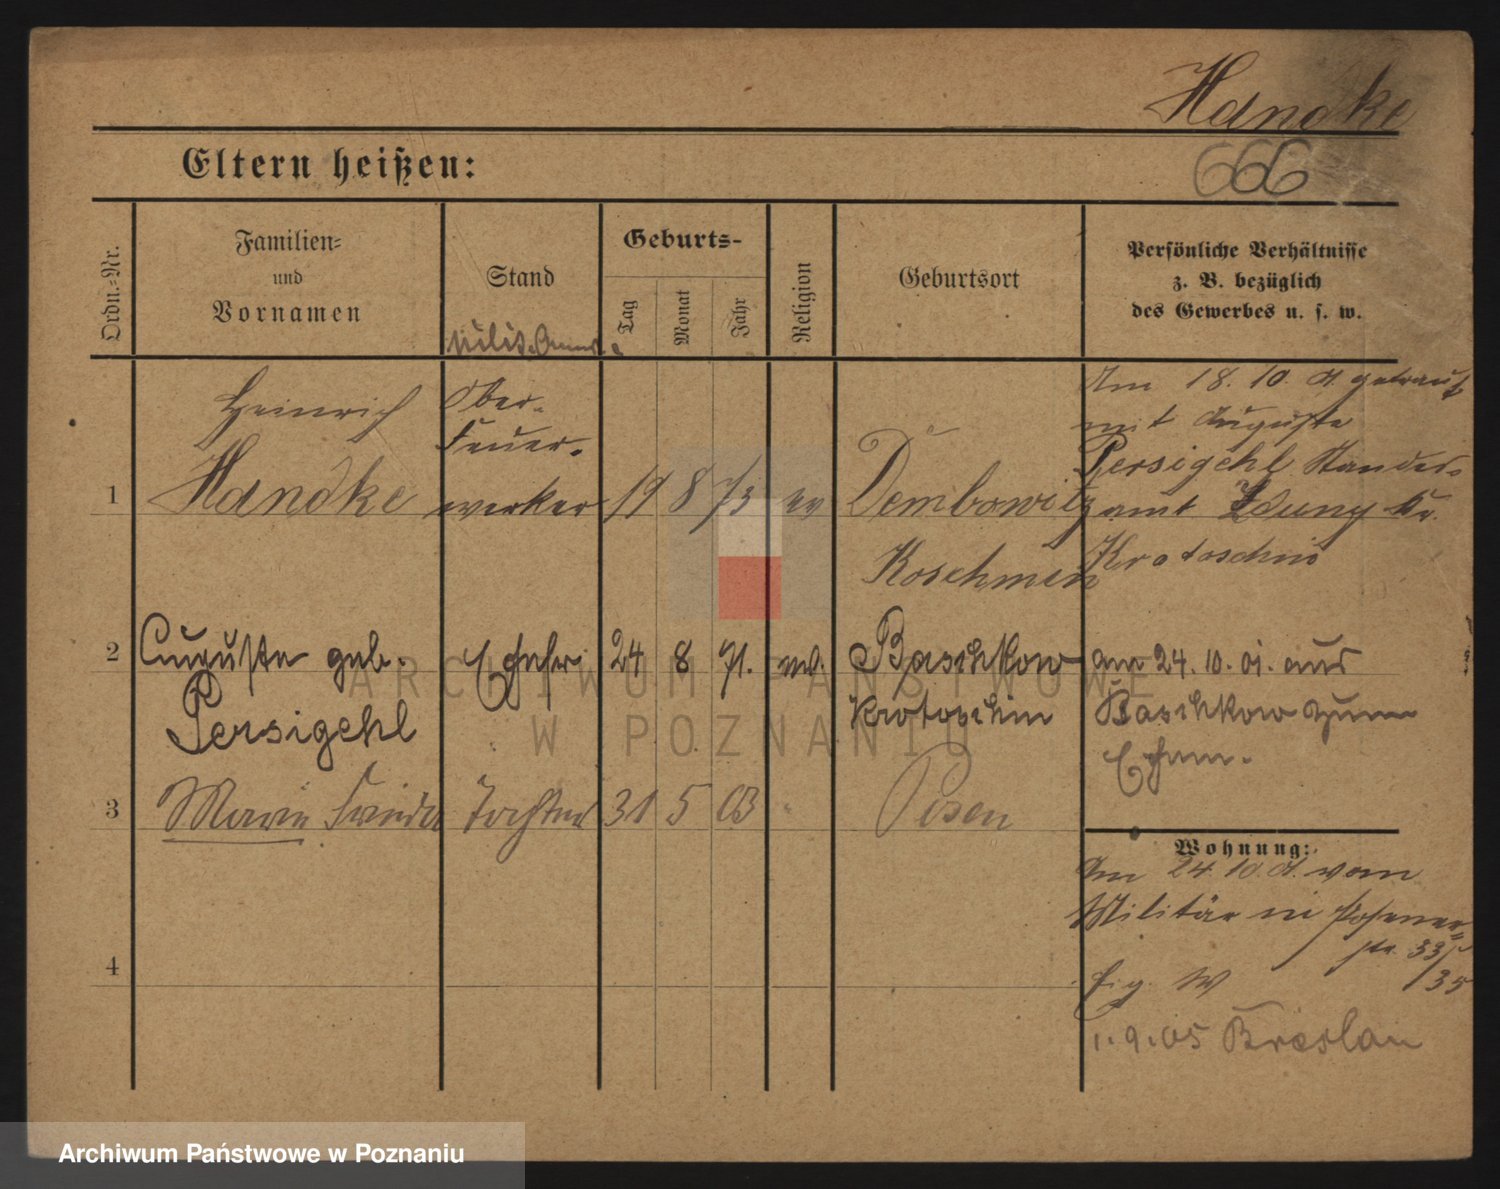 Handke
666
Eltern heißen:
Ordn.-Nr.
Familien-
und
Vornamen
Stand
Geburts-
Tag
Monat
Jahr
Religion
Geburtsort
Persönliche Verhältnisse
z. B. bezüglich
des Gewerbes u. s. w.
1
Heinrich
Handke
Ober-
feuer-
werker
19 8 73
ev
Dembowitz
Koschmin
Am 18. 10. 01 getraut
mit Auguste
Persigehl Standes-
amt Zduny Kr.
Krotoschin
2
Auguste geb.
Persigehl
Ehefr.
24 8 71.
ev.
Baschkow
Krotoschin
am 24. 10. 01. aus
Baschkow zum
Ehem.
3
Marie Frieda
Tochter
31 5 03
"
Posen
Wohnung:
Am 24. 10. 01. vom
Militär in Posener-
str. 33/
35
W
1. 9. 05 Breslau
4
ARCHIWUM PAŃSTWOWE
W POZNANIU
Archiwum Państwowe w Poznaniu